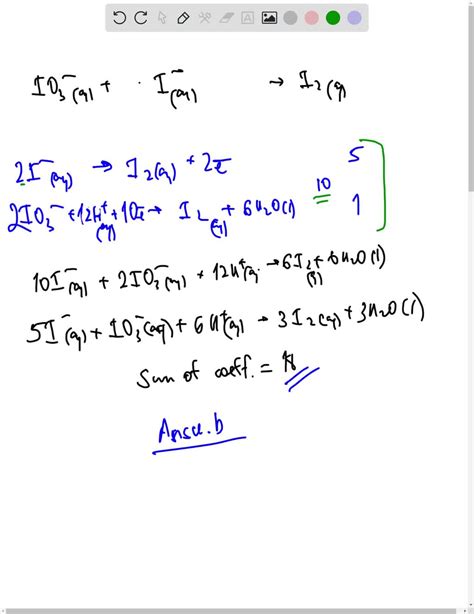 IO₃⁻(aq) + · I⁻(aq) → I₂(g)
2I⁻(aq) → I₂(aq) + 2e̅ 5
2IO₃⁻ + 12H⁺(aq) + 10e̅ → I₂(g) + 6H₂O(l) 10 1
10I⁻(aq) + 2IO₃⁻(aq) + 12H⁺(aq) → 6I₂(g) + 6H₂O(l)
5I⁻(aq) + IO₃⁻(aq) + 6H⁺(aq) → 3I₂(aq) + 3H₂O(l)
Sum of coeff. =
Answ. b